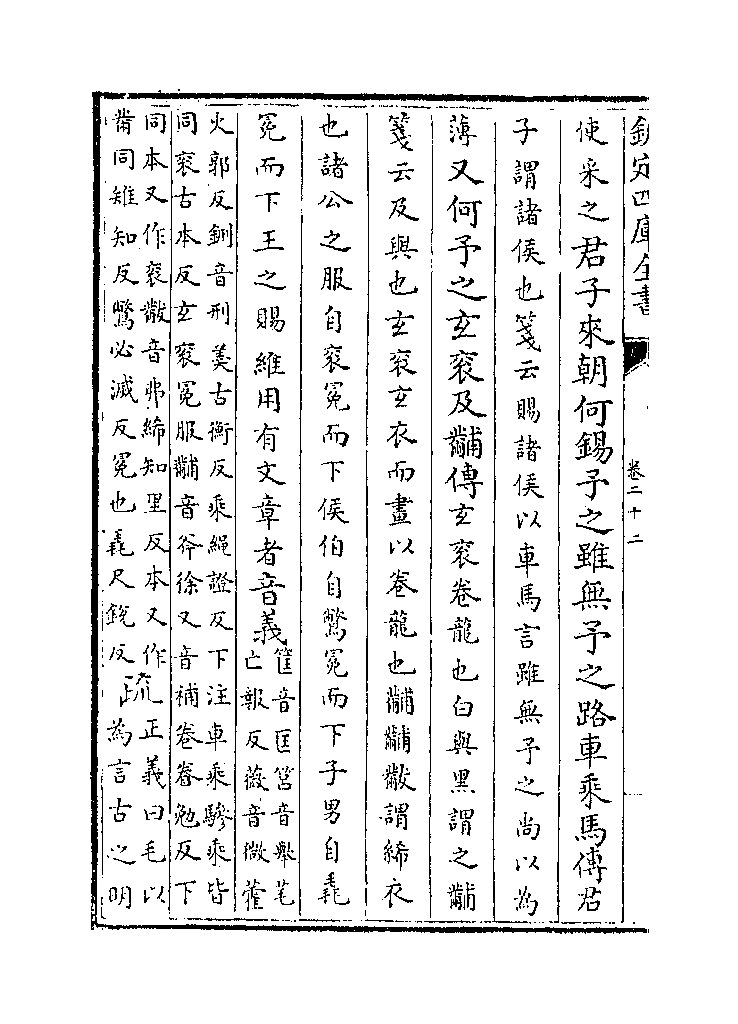 欽定四庫全書 卷二十二
使采之君子來朝何錫予之雖無予之路車乘馬傳君
子謂諸侯也箋云賜諸侯以車馬言雖無予之尚以為
薄又何予之玄衮及黼傳玄衮卷龍也白與黑謂之黼
箋云及與也玄衮玄衣而畫以卷龍也黼黼黻謂絺衣
也諸公之服自衮冕而下侯伯自鷩冕而下子男自毳
冕而下王之賜維用有文章者音義筐音匡筥音舉芼
亡報反薇音微藿
火郭反鉶音刑羹古衡反乘繩證反下注車乘驂乘皆
同衮古本反玄衮冕服黼音斧徐又音補卷眷勉反下
同本又作衮黻音弗絺知里反本又作
黹同雉知反鷩必滅反冕也毳尺銳反疏正義曰毛以
為言古之明